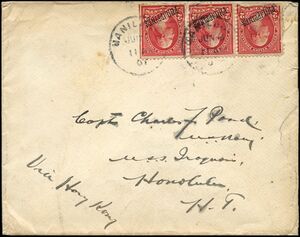 MANILA
PHILIPPINES PHILIPPINES PHILIPPINES
Capt Charles F. Pond,
U.S. Navy
U.S.S. Iroquois,
Honolulu
H. T.
Via Hong Kong